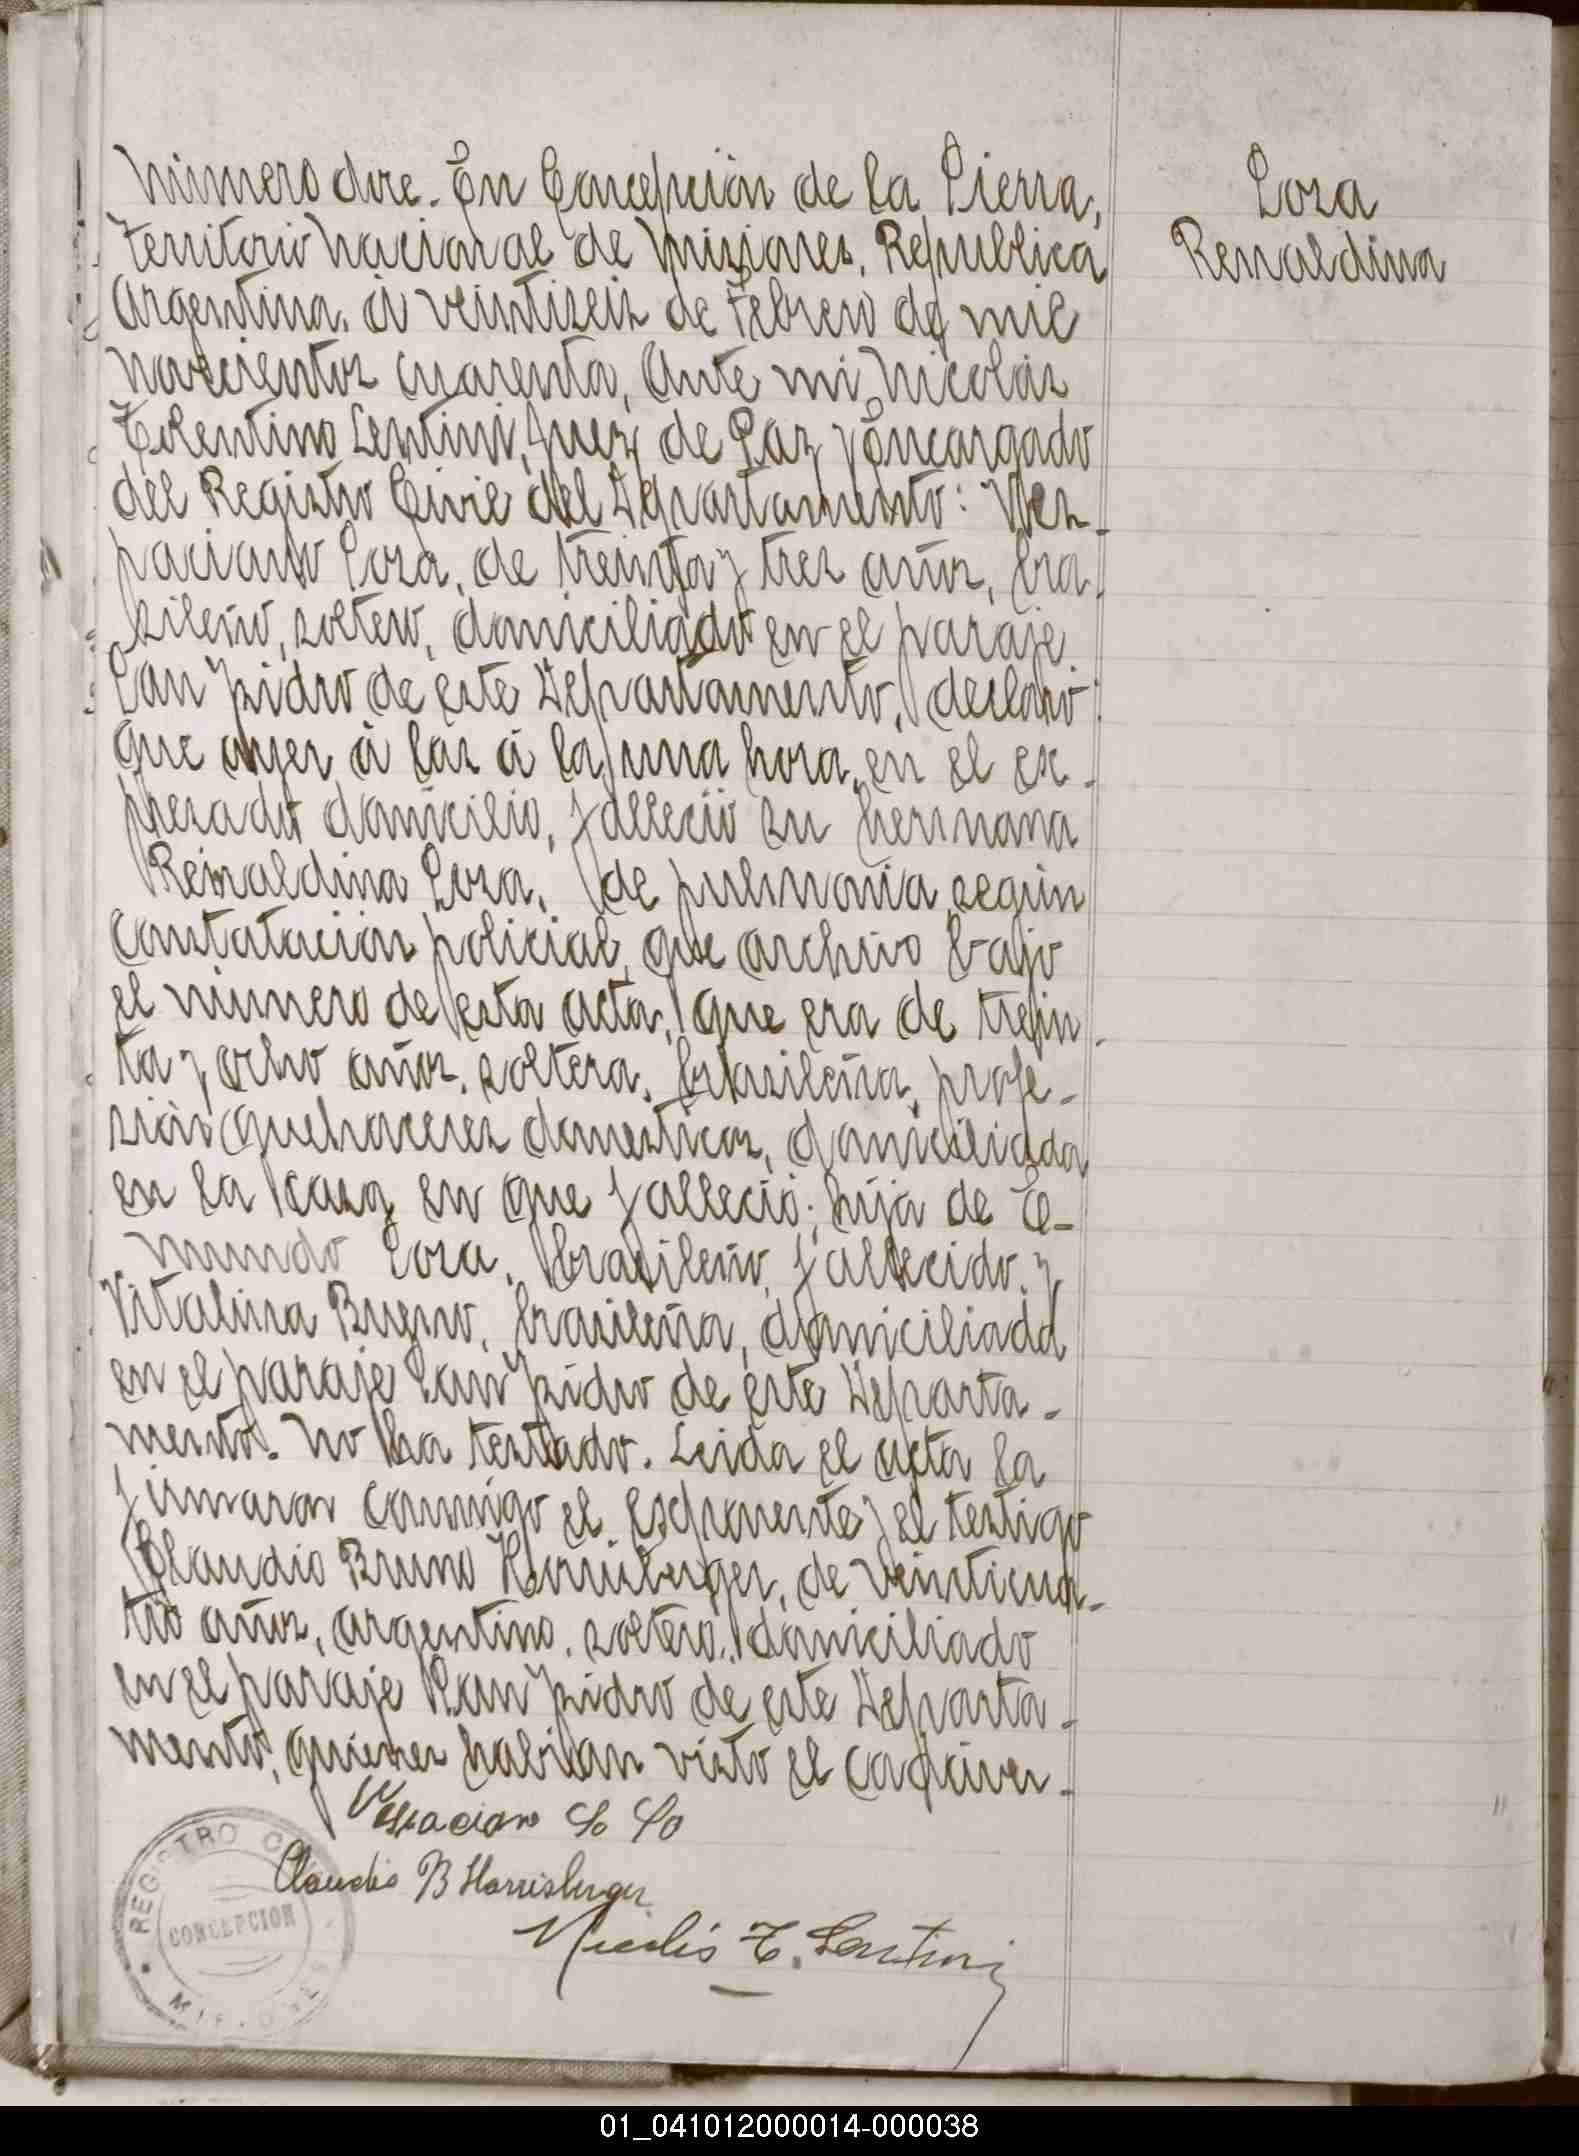 Número doce. En Concepción de la Sierra,
Territorio Nacional de Misiones, Republica
Argentina, á veintiseis de Febrero de mil
novecientos cuarenta, Ante mi, Nicolás
Tolentino Lentini, Juez de Paz y Encargado
del Registro Civil del Departamento: Ves-
paciano Sosa, de treinta y tres años, bra-
sileño, soltero, domiciliado en el paraje
San Ysidro de este Departamento, declaró:
Que ayer á las á la una hora, en el ex-
presado domicilio, falleció su hermana
Reinaldina Sosa, de pulmonía, según
constatación policial, que archivo bajo
el número de esta acta, que era de trein-
ta y ocho años, soltera, brasileña, profe-
sión quehaceres domesticos, domiciliada
en la casa en que falleció; hija de E-
mundo Sosa, brasileño, fallecido, y
Vitalina Bueno, brasileña, domiciliada
en el paraje San Ysidro de este Departa-
mento. No ha testado. Leida el acta la
firmaron conmigo el exponente y el testigo
Claudio Bruno Horrisberger, de veinticua-
tro años, argentino, soltero, domiciliado
en el paraje San Ysidro de este Departa-
mento, quienes habian visto el cadáver.
Vespaciano So So
Claudio B Horrisberger
Nicolás T. Lentini
REGISTRO
CONCEPCION
MISIONES
Sosa
Renaldina
01_041012000014-000038